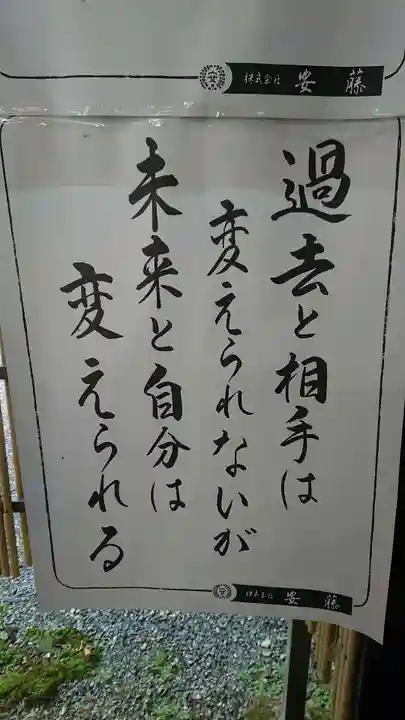 株式会社 安藤
過去と相手は
変えられないが
未来と自分は
変えられる
株式会社 安藤